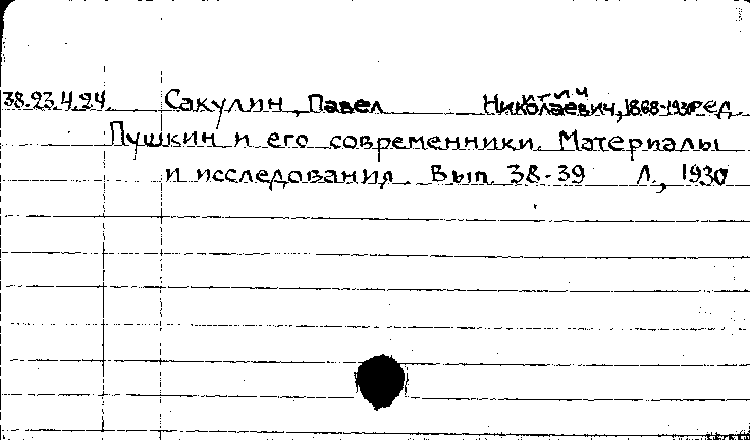 38.23.4.24. Сакулин, Павел Николаевич, 1868-1930 ред.
Пушкин и его современники. Материалы
и исследования. Вып. 38-39 Л., 1930